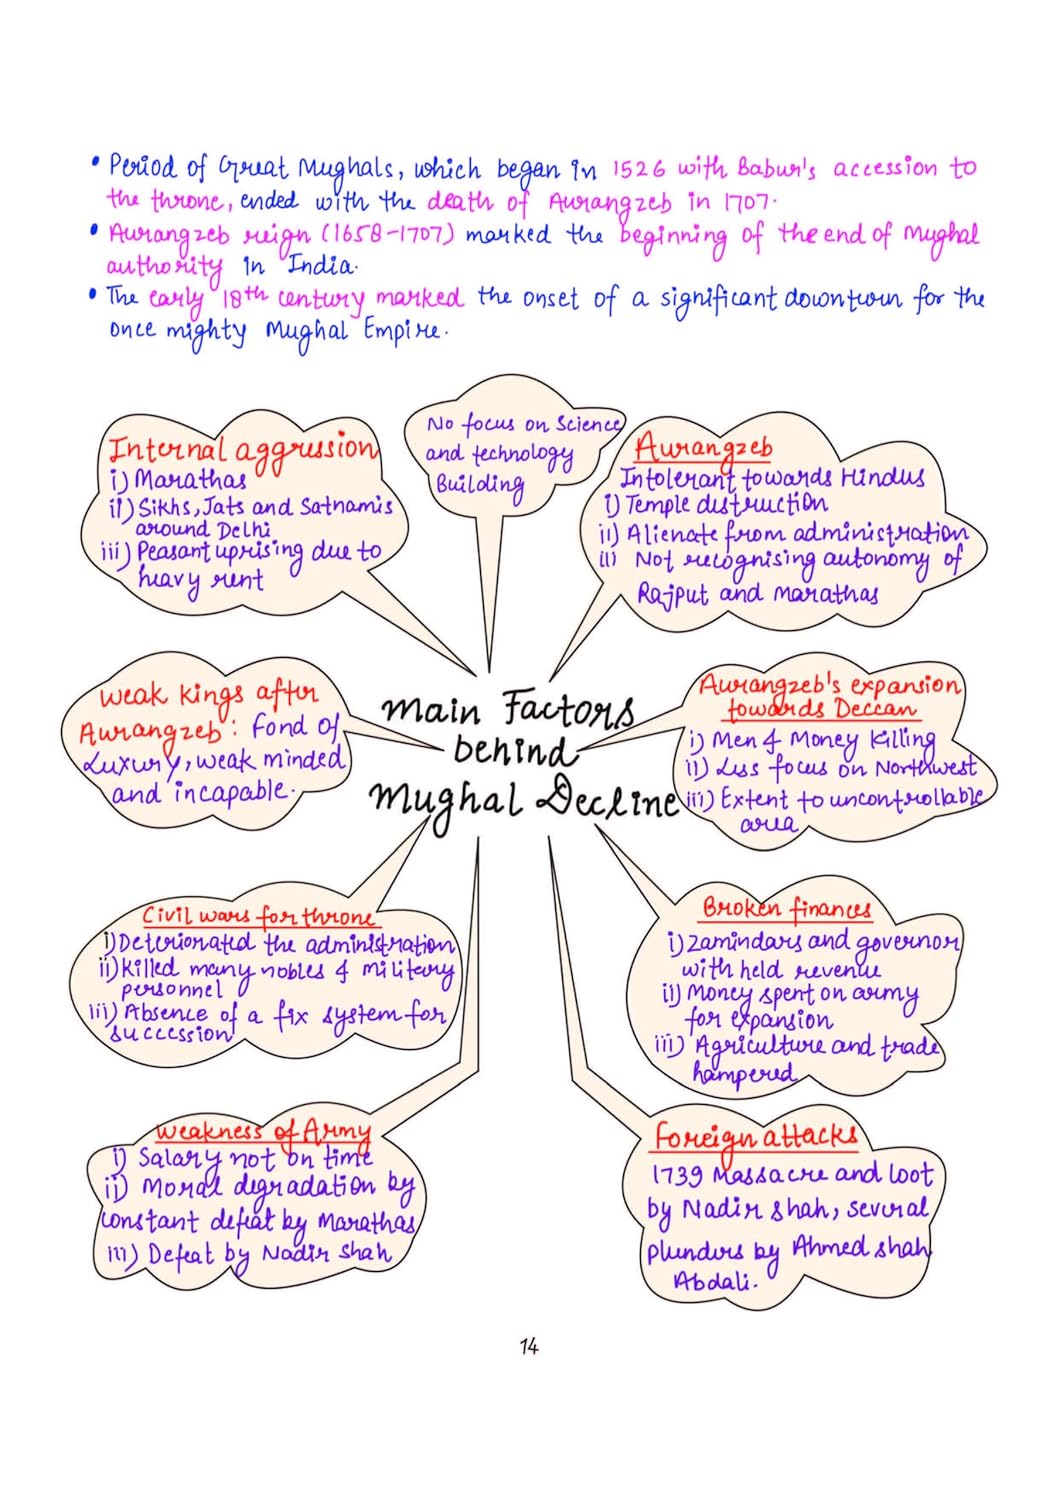 • Period of Great Mughals, which began in 1526 with Babur's accession to
the throne, ended with the death of Aurangzeb in 1707.
• Aurangzeb reign (1658-1707) marked the beginning of the end of Mughal
authority in India.
• The early 18th century marked the onset of a significant downturn for the
once mighty Mughal Empire.
No focus on Science
and technology
Building
Internal aggression
i) Marathas
ii) Sikhs, Jats and Satnamis
around Delhi
iii) Peasant uprising due to
heavy rent
Aurangzeb
Intolerant towards Hindus
i) Temple destruction
ii) Alienate from administration
iii) Not recognising autonomy of
Rajput and Marathas
Weak Kings after
Aurangzeb: Fond of
Luxury, weak minded
and incapable.
Main Factors
behind
Mughal Decline
Aurangzeb's expansion
towards Deccan
i) Men & Money Killing
ii) Less focus on Northwest
iii) Extent to uncontrollable
area
Civil wars for throne
i) Deteriorated the administration
ii) Killed many nobles & military
personnel
iii) Absence of a fix system for
succession
Broken finances
i) Zamindars and governor
with held revenue
ii) Money spent on army
for expansion
iii) Agriculture and trade
hampered
Weakness of Army
i) Salary not on time
ii) Moral degradation by
constant defeat by Marathas
iii) Defeat by Nadir Shah
Foreign attacks
1739 Massacre and loot
by Nadir Shah, several
plunders by Ahmed Shah
Abdali.
14